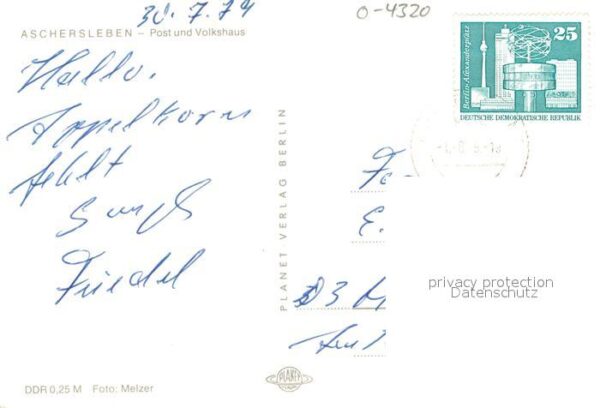 30.7.74
O-4320
ASCHERSLEBEN – Post und Volkshaus
25
Berlin-Alexanderplatz
DEUTSCHE DEMOKRATISCHE REPUBLIK
Hallo.
Appelkorn
fehlt
Gruß
Friedel
PLANET VERLAG BERLIN
E.
D3
privacy protection
Datenschutz
PLANET
DDR 0,25 M Foto: Melzer